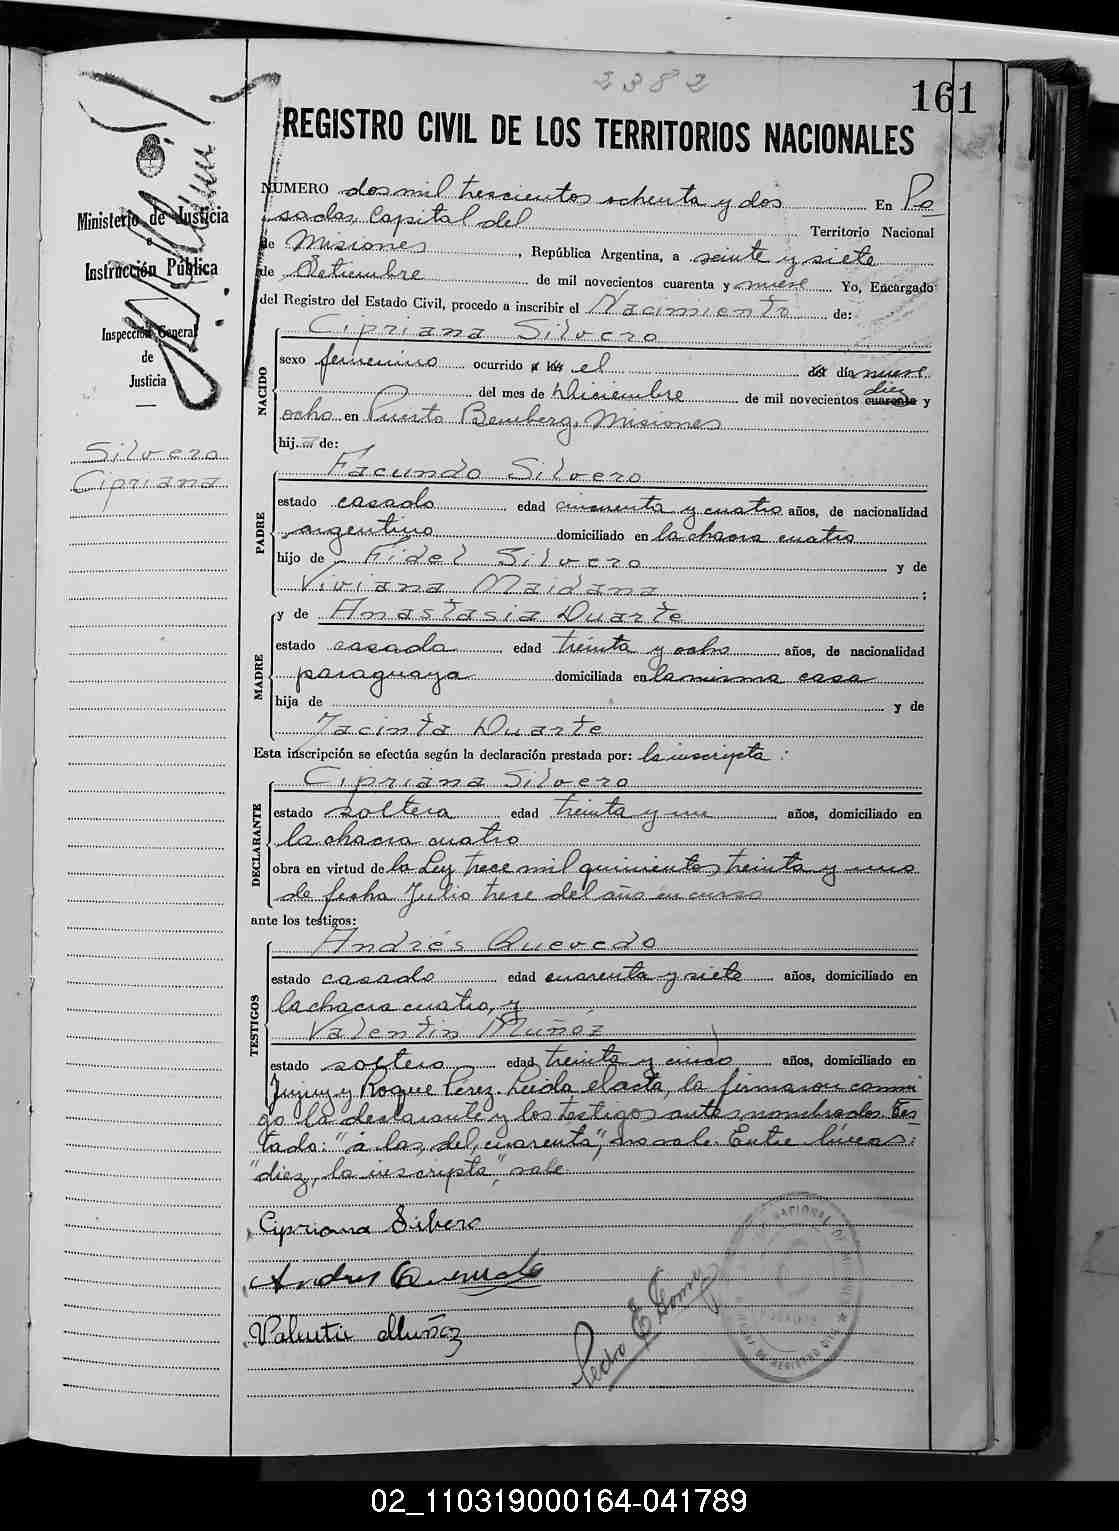 2382
161
REGISTRO CIVIL DE LOS TERRITORIOS NACIONALES
Ministerio de Justicia
e
Instrucción Pública
Inspección General
de
Justicia
Silvero
Cipriana
NUMERO dos mil trescientos ochenta y dos En Po-
sadas Capital del Territorio Nacional
de Misiones, República Argentina, a veinte y siete
de Setiembre de mil novecientos cuarenta y nueve Yo, Encargado
del Registro del Estado Civil, procedo a inscribir el Nacimiento de:
NACIDO
Cipriana Silvero
sexo femenino ocurrido a las el del día nueve
diez
del mes de Diciembre de mil novecientos cuarenta y
ocho en Puerto Bemberg, Misiones
hija de:
PADRE
Facundo Silvero
estado casado edad cincuenta y cuatro años, de nacionalidad
argentino domiciliado en la chacra cuatro
hijo de Fidel Silvero y de
Viviana Maidana;
MADRE
y de Anastasia Duarte
estado casada edad treinta y ocho años, de nacionalidad
paraguaya domiciliada en la misma casa
hija de y de
Jacinta Duarte
Esta inscripción se efectúa según la declaración prestada por: la inscripta:
DECLARANTE
Cipriana Silvero
estado soltera edad treinta y un años, domiciliado en
la chacra cuatro
obra en virtud de la Ley trece mil quinientos treinta y uno
de fecha Julio trece del año en curso
ante los testigos:
TESTIGOS
Andrés Quevedo
estado casado edad cuarenta y siete años, domiciliado en
la chacra cuatro, y
Valentín Muñoz
estado soltero edad treinta y cinco años, domiciliado en
Jujuy y Roque Pérez. Leída el acta, la firmaron conmi
go la declarante y los testigos antes nombrados. Tes-
tado: "a las, del, cuarenta", no vale. Entre líneas:
"diez, la inscripta", vale
Cipriana Silbero
Andres Quevedo
Valentin Muñoz
Pedro E Gomez
02_110319000164-041789